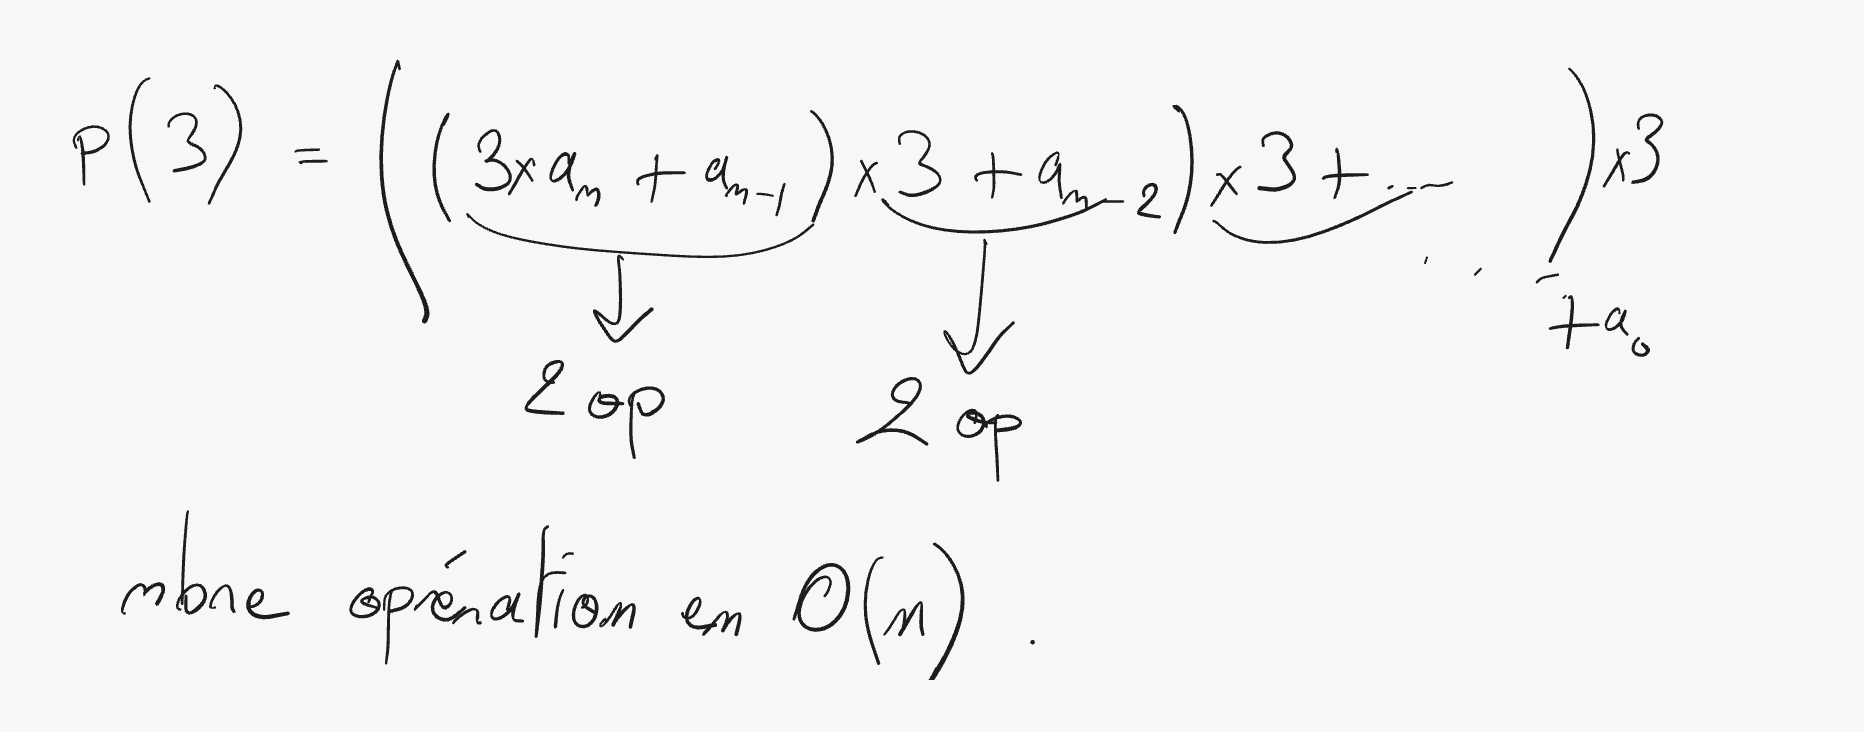 P(3) = ((3×aₙ + aₙ₋₁)×3 + aₙ₋₂)×3 + ... )×3
+ a₀
2 op 2 op
nbre opération en O(n).